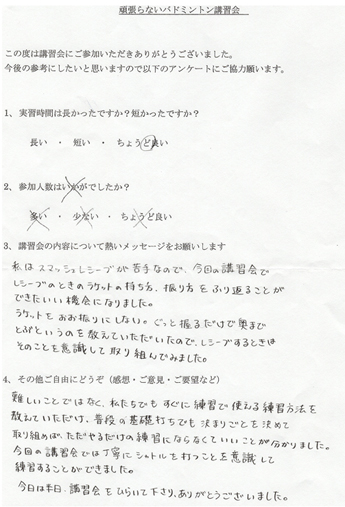 頑張らないバドミントン講習会
この度は講習会にご参加いただきありがとうございました。
今後の参考にしたいと思いますので以下のアンケートにご協力願います。
1、実習時間は長かったですか？短かったですか？
長い ・ 短い ・ ちょうど良い
2、参加人数はいかがでしたか？
多い ・ 少ない ・ ちょうど良い
3、講習会の内容について熱いメッセージをお願いします
私はスマッシュレシーブが苦手なので、今回の講習会で
レシーブのときのラケットの持ち方、振り方をふり返ることが
できたいい機会になりました。
ラケットをおお振りにしない。ぐっと握るだけで奥まで
とぶというのを教えていただいたので、レシーブするときは
そのことを意識して取り組んでみました。
4、その他ご自由にどうぞ（感想・ご意見・ご要望など）
難しいことではなく、私たちでもすぐに練習で使える練習方法を
教えていただけ、普段の基礎打ちでも決まりごとを決めて
取り組めば、ただやるだけの練習にならなくていいことが分かりました。
今回の講習会では丁寧にシャトルを打つことを意識して
練習することができました。
今日は半日、講習会をひらいて下さり、ありがとうございました。